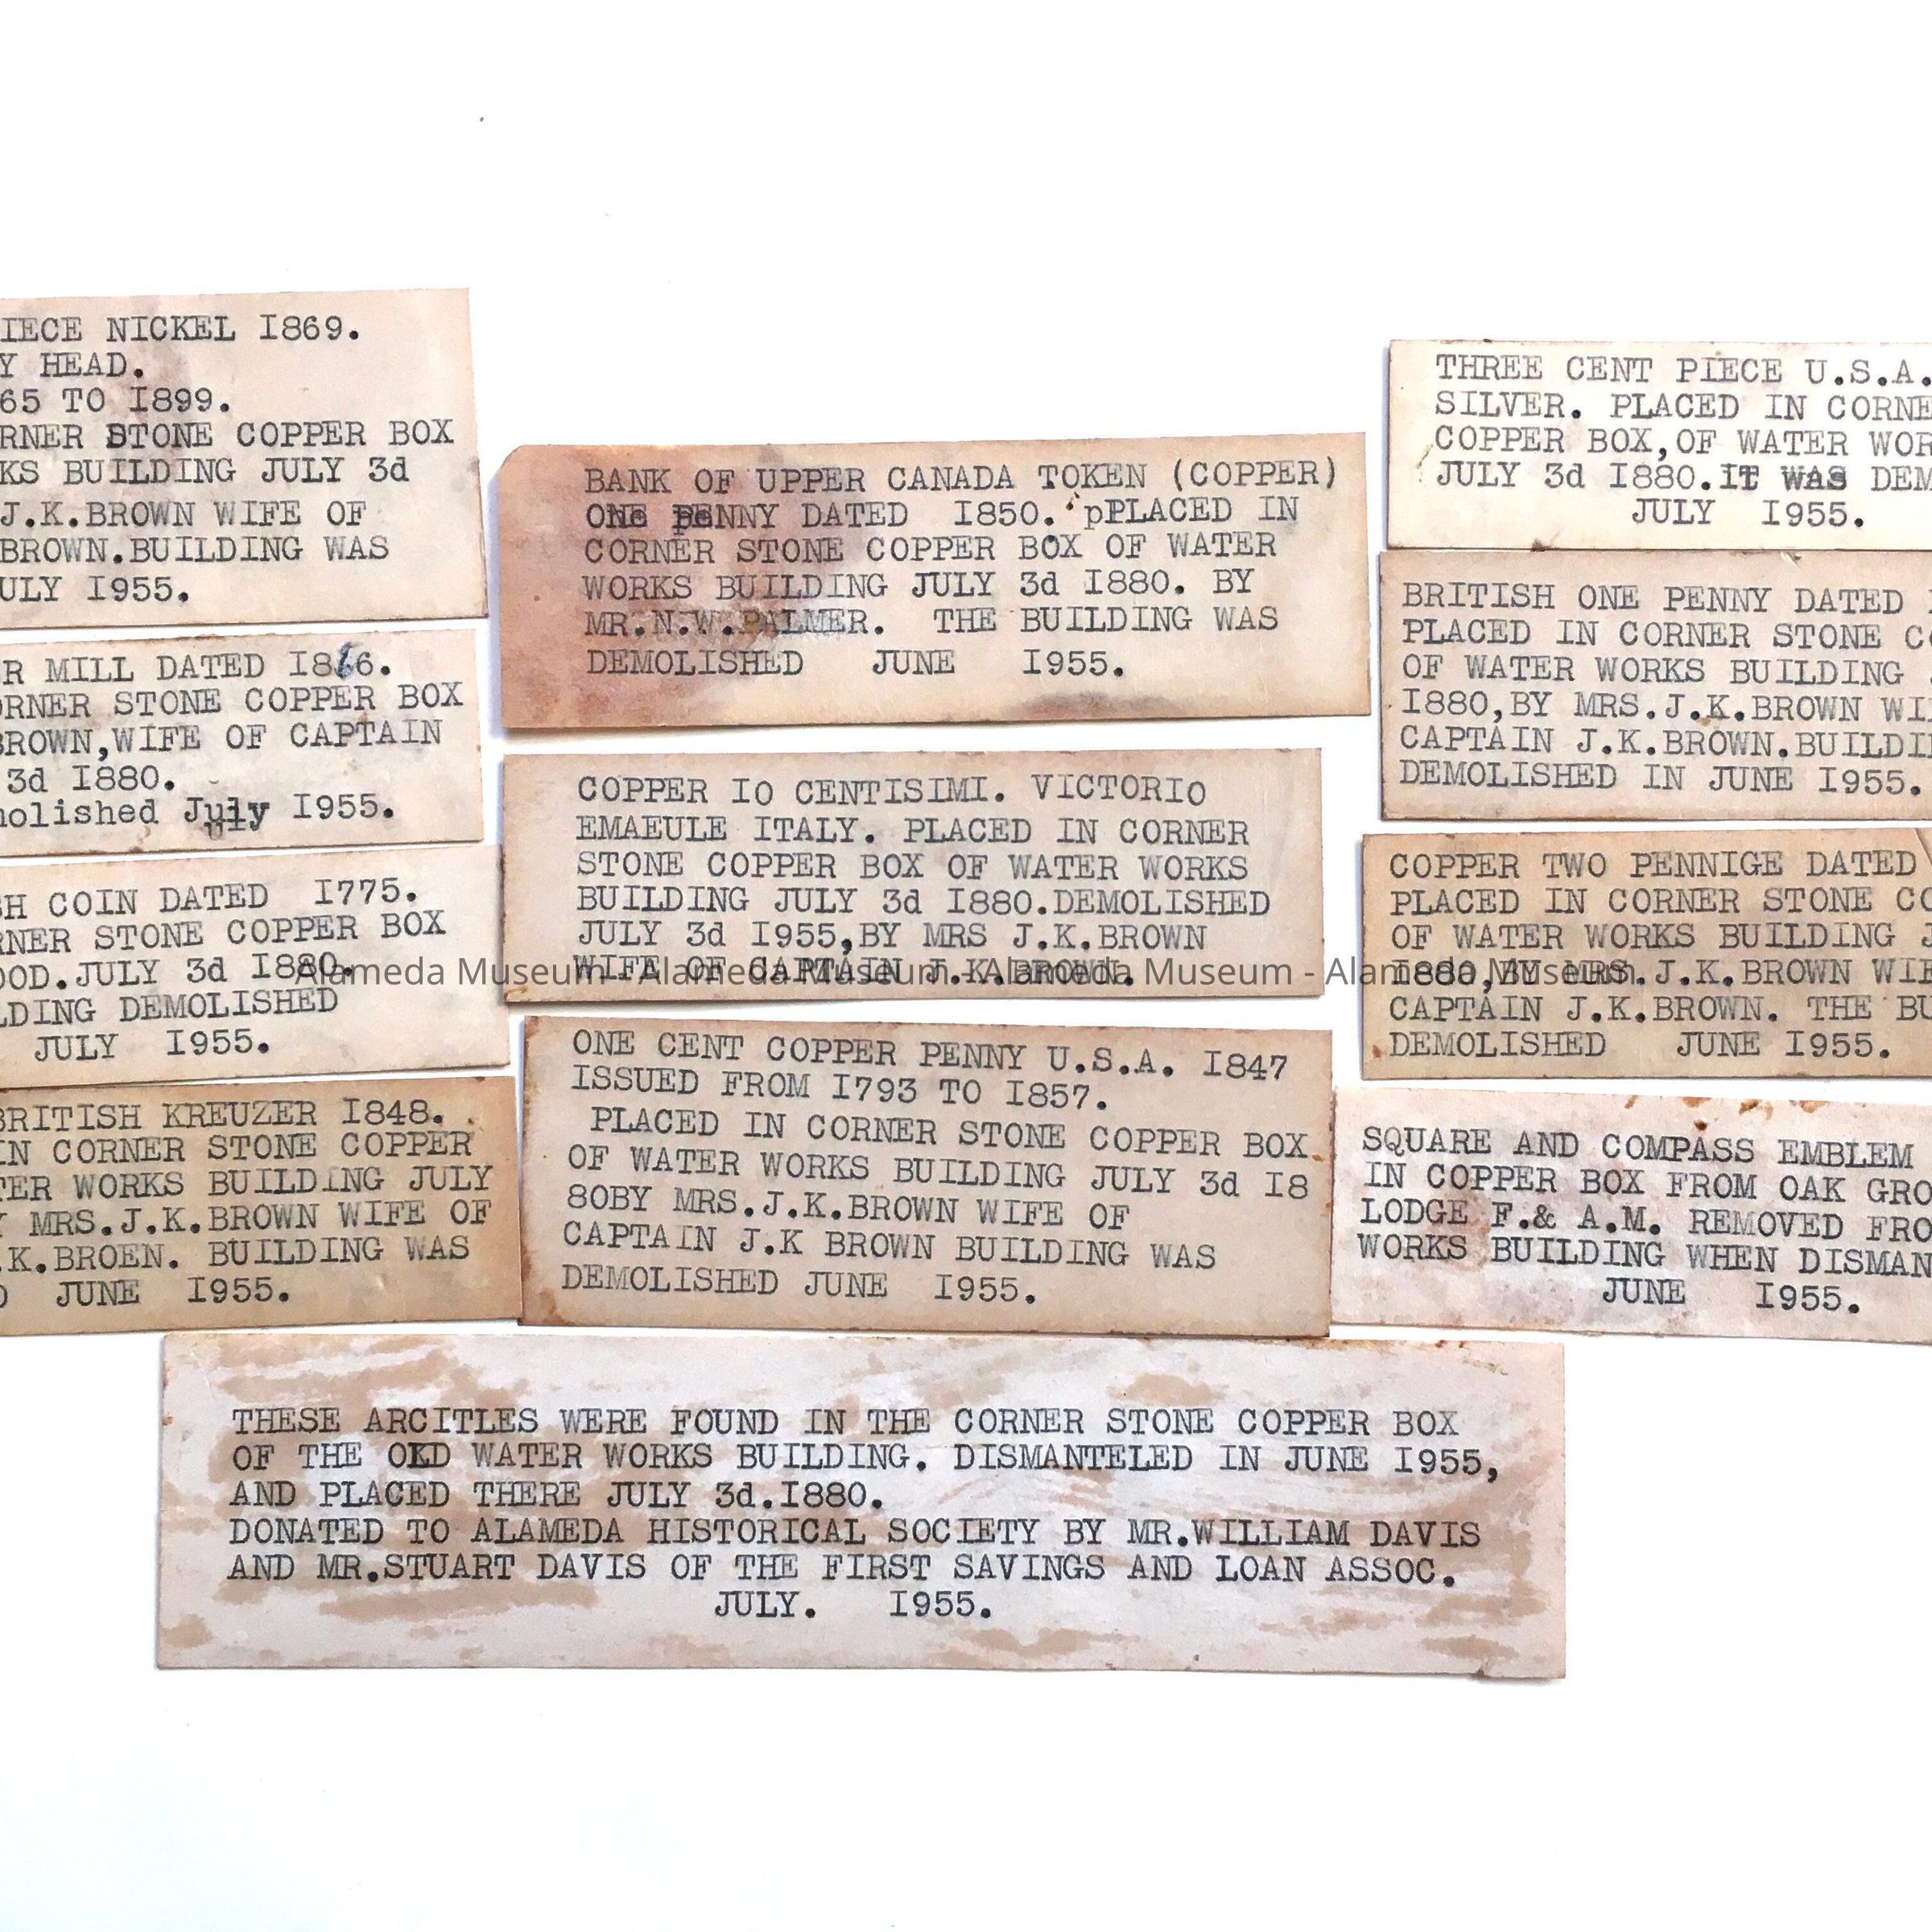 IECE NICKEL I869.
Y HEAD.
65 TO I899.
RNER STONE COPPER BOX
KS BUILDING JULY 3d
J.K.BROWN WIFE OF
BROWN.BUILDING WAS
ULY I955.
R MILL DATED I866.
ORNER STONE COPPER BOX
BROWN,WIFE OF CAPTAIN
3d I880.
molished July I955.
SH COIN DATED I775.
RNER STONE COPPER BOX
OOD.JULY 3d I880.
LDING DEMOLISHED
JULY I955.
BRITISH KREUZER I848.
IN CORNER STONE COPPER
TER WORKS BUILDING JULY
Y MRS.J.K.BROWN WIFE OF
.K.BROEN. BUILDING WAS
D JUNE I955.
BANK OF UPPER CANADA TOKEN (COPPER)
ONe peNNY DATED I850. pPLACED IN
CORNER STONE COPPER BOX OF WATER
WORKS BUILDING JULY 3d I880. BY
MR.N.W.PALMER. THE BUILDING WAS
DEMOLISHED JUNE I955.
COPPER IO CENTISIMI. VICTORIO
EMAEULE ITALY. PLACED IN CORNER
STONE COPPER BOX OF WATER WORKS
BUILDING JULY 3d I880.DEMOLISHED
JULY 3d I955,BY MRS J.K.BROWN
WIFE OF CAPTAIN J.K.BROWN.
ONE CENT COPPER PENNY U.S.A. I847
ISSUED FROM I793 TO I857.
PLACED IN CORNER STONE COPPER BOX
OF WATER WORKS BUILDING JULY 3d I8
80BY MRS.J.K.BROWN WIFE OF
CAPTAIN J.K BROWN BUILDING WAS
DEMOLISHED JUNE I955.
THREE CENT PIECE U.S.A.
SILVER. PLACED IN CORNE
COPPER BOX,OF WATER WOR
JULY 3d I880.IT WAS DEM
JULY I955.
BRITISH ONE PENNY DATED
PLACED IN CORNER STONE CO
OF WATER WORKS BUILDING
I880,BY MRS.J.K.BROWN WI
CAPTAIN J.K.BROWN.BUILDI
DEMOLISHED IN JUNE I955.
COPPER TWO PENNIGE DATED
PLACED IN CORNER STONE CO
OF WATER WORKS BUILDING J
I880,BY MRS.J.K.BROWN WIF
CAPTAIN J.K.BROWN. THE BU
DEMOLISHED JUNE I955.
SQUARE AND COMPASS EMBLEM
IN COPPER BOX FROM OAK GRO
LODGE F.& A.M. REMOVED FRO
WORKS BUILDING WHEN DISMAN
JUNE I955.
THESE ARCITLES WERE FOUND IN THE CORNER STONE COPPER BOX
OF THE OLD WATER WORKS BUILDING. DISMANTELED IN JUNE I955,
AND PLACED THERE JULY 3d.I880.
DONATED TO ALAMEDA HISTORICAL SOCIETY BY MR.WILLIAM DAVIS
AND MR.STUART DAVIS OF THE FIRST SAVINGS AND LOAN ASSOC.
JULY. I955.
Alameda Museum - Alameda Museum - Alameda Museum - Alameda Museum